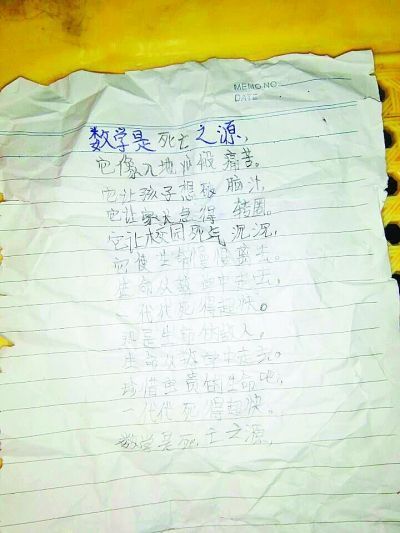 MEMO NO.
DATE
数学是死亡之源,
它像入地狱般痛苦。
它让孩子想破脑汁,
它让家长急得转圈。
它让校园死气沉沉,
它使生命慢慢离去。
生命从数中走去,
一代代死得超快。
是生命的敌人,
生命从数中走完。
珍惜宝贵的生命吧,
一代代死得超快。
数学是死亡之源,